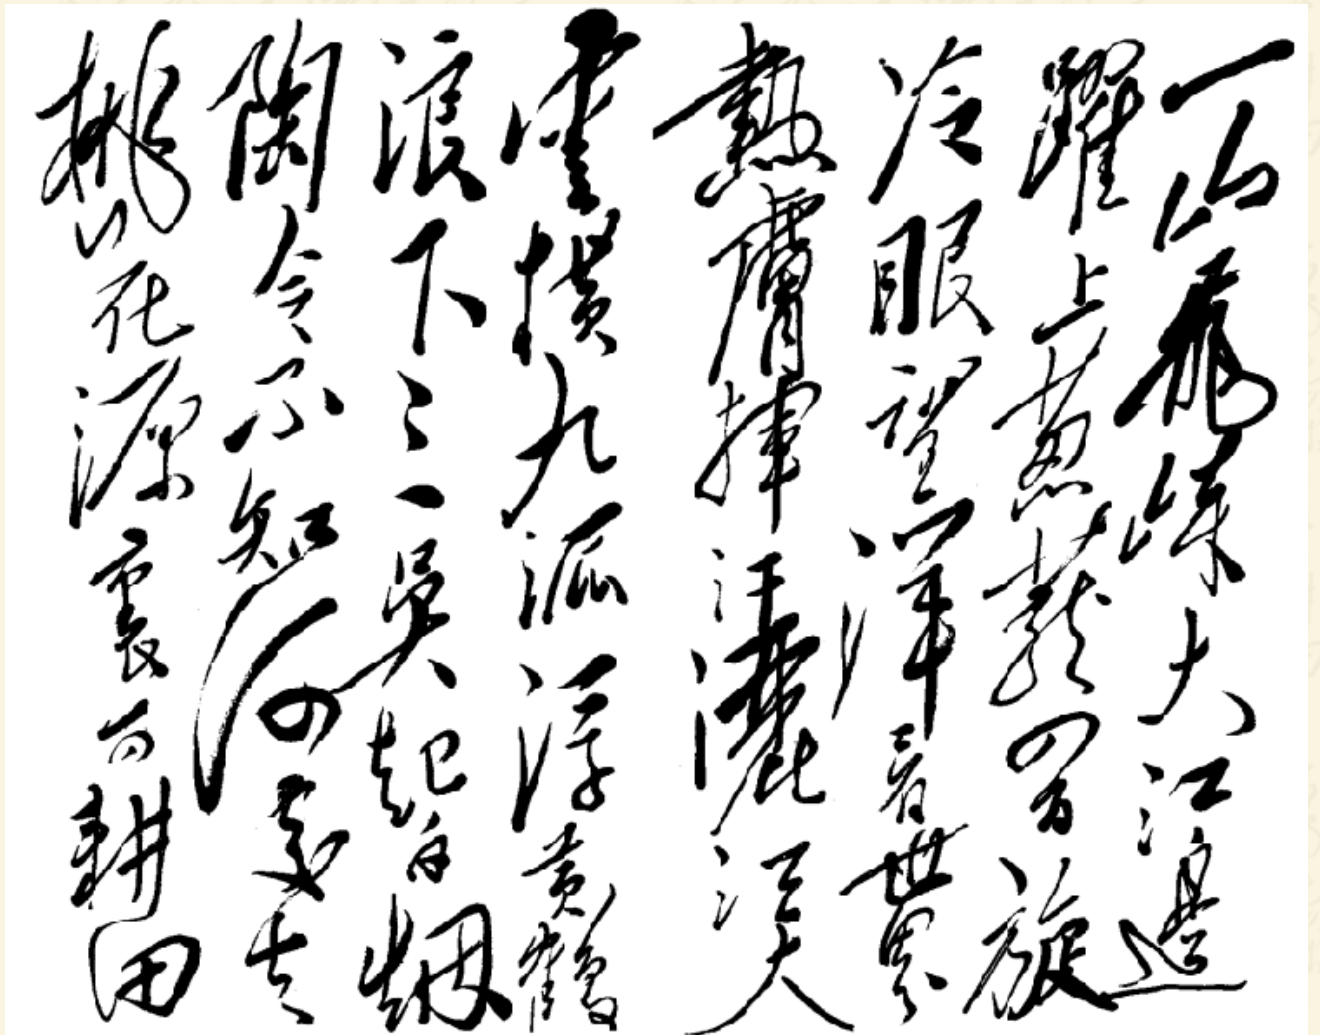 一山飛峙大江邊
躍上葱蘢四百旋
冷眼望洋看世界
熱膚揮汗灑江天
雲橫九派浮黄鶴
浪下三吳起白烟
陶令不知何處去
桃花源裏可耕田